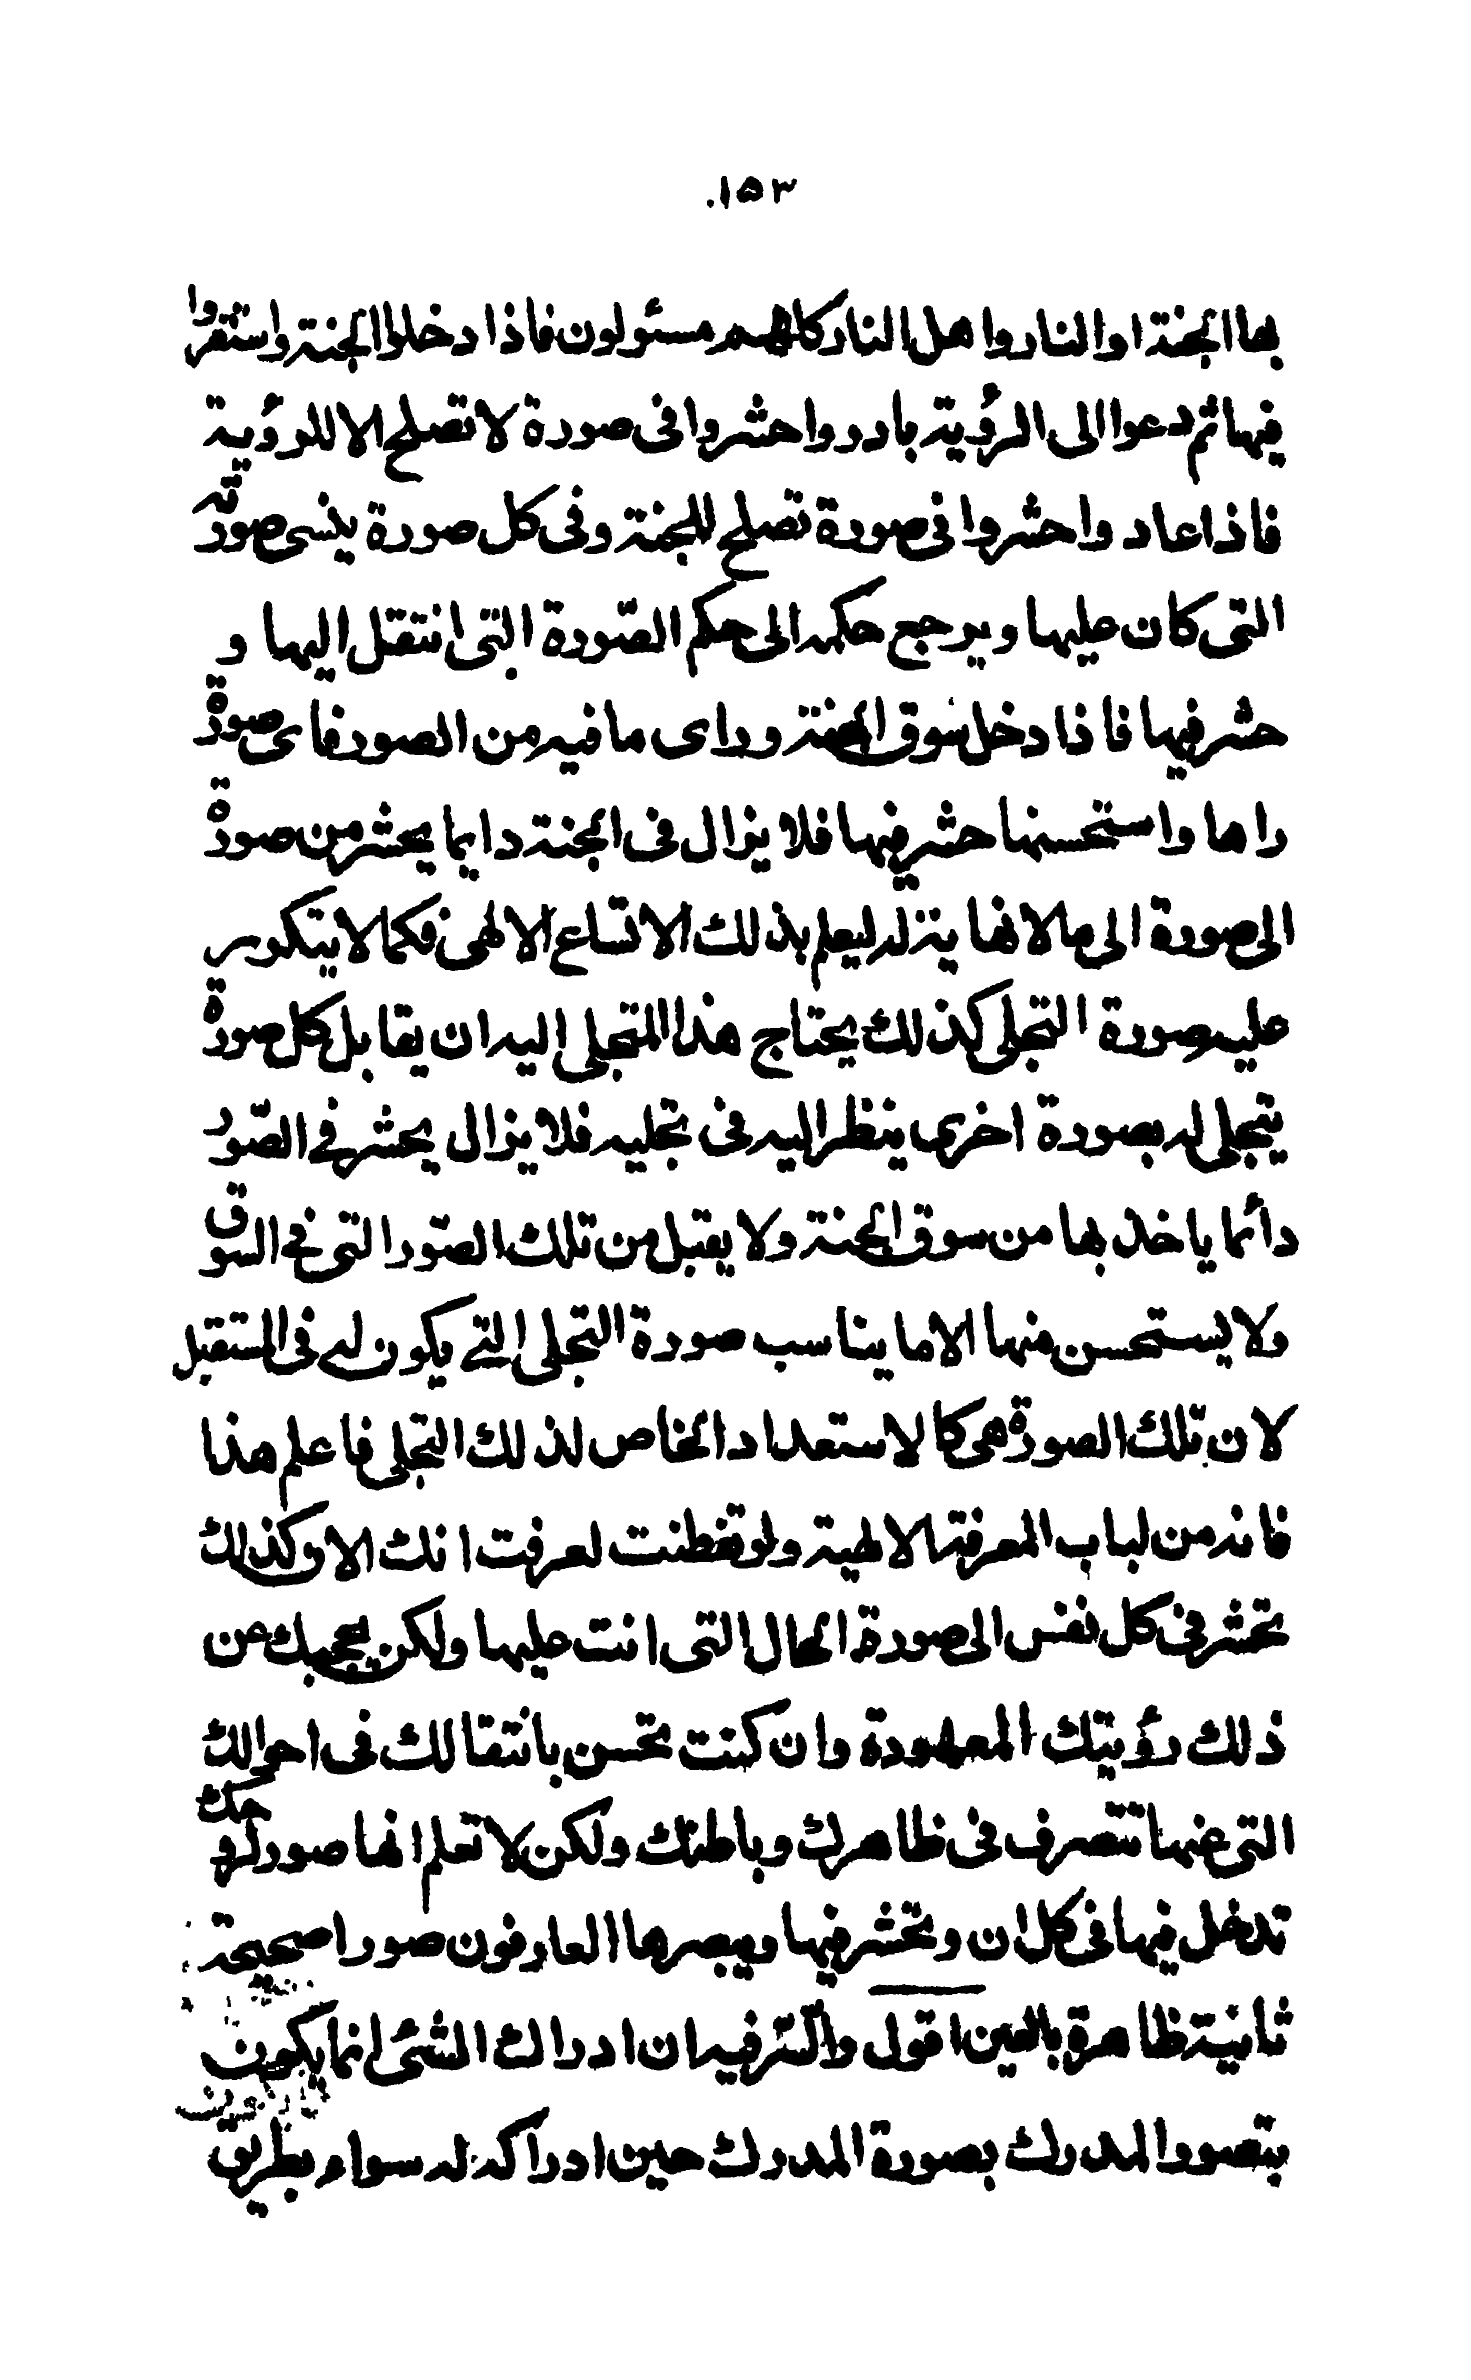 ١٥٣.
بها الجنة او النار واهل النار كلهم مسئولون فاذا دخلوا الجنة واستقروا
فيها ثم دعوا الى الرؤية بادروا حشروا فى صورة لا تصلح الا للرؤية
فاذا عادوا حشروا فى صورة تصلح للجنة وفى كل صورة ينسى صورته
التى كان عليها ويرجع حكمه الى حكم الصّورة التى انتقل اليها و
حشر فيها فاذا دخل سوق الجنة وراى ما فيه من الصور فاى صورة
راها واستحسنها حشر فيها فلا يزال فى الجنة دايما يحشر من صورة
الى صورة الى ما لا نهاية له ليعلم بذلك الاتساع الالهى فكما لا يتكرر
عليه صورة التجلى كذلك يحتاج هذا المتجلى اليه ان يقابل كل صورة
يتجلى له بصورة اخرى ينظر اليه فى تجليه فلا يزال يحشر في الصّور
دائما ياخذ بها من سوق الجنة ولا يقبل من تلك الصّور التى في السوق
ولا يستحسن منها الا ما يناسب صورة التجلى التي يكون له في المستقبل
لان تلك الصورة هى كالاستعداد الخاص لذلك التجلى فاعلم هذا
فانه من لباب المعرفة الالهية ولو تفطنت لعرفت انك الان وكذلك
تحشر فى كل نفس الى صورة الحال التى انت عليها ولكن يحجبك عن
ذلك رؤيتك المعهودة وان كنت تحس بانتقالك فى احوالك
التى عنها تتصرف فى ظاهرك وباطنك ولكن لا تعلم انها صور لروحك
تدخل فيها فى كل ان وتحشر فيها ويبصرها العارفون صورا صحيحة
ثانية ظاهرة بالعين اقول والسّر فيه ان ادراك الشئ انما يكون
بتصور المدرك بصورة المدرك حين ادراكه له سواء بطريق